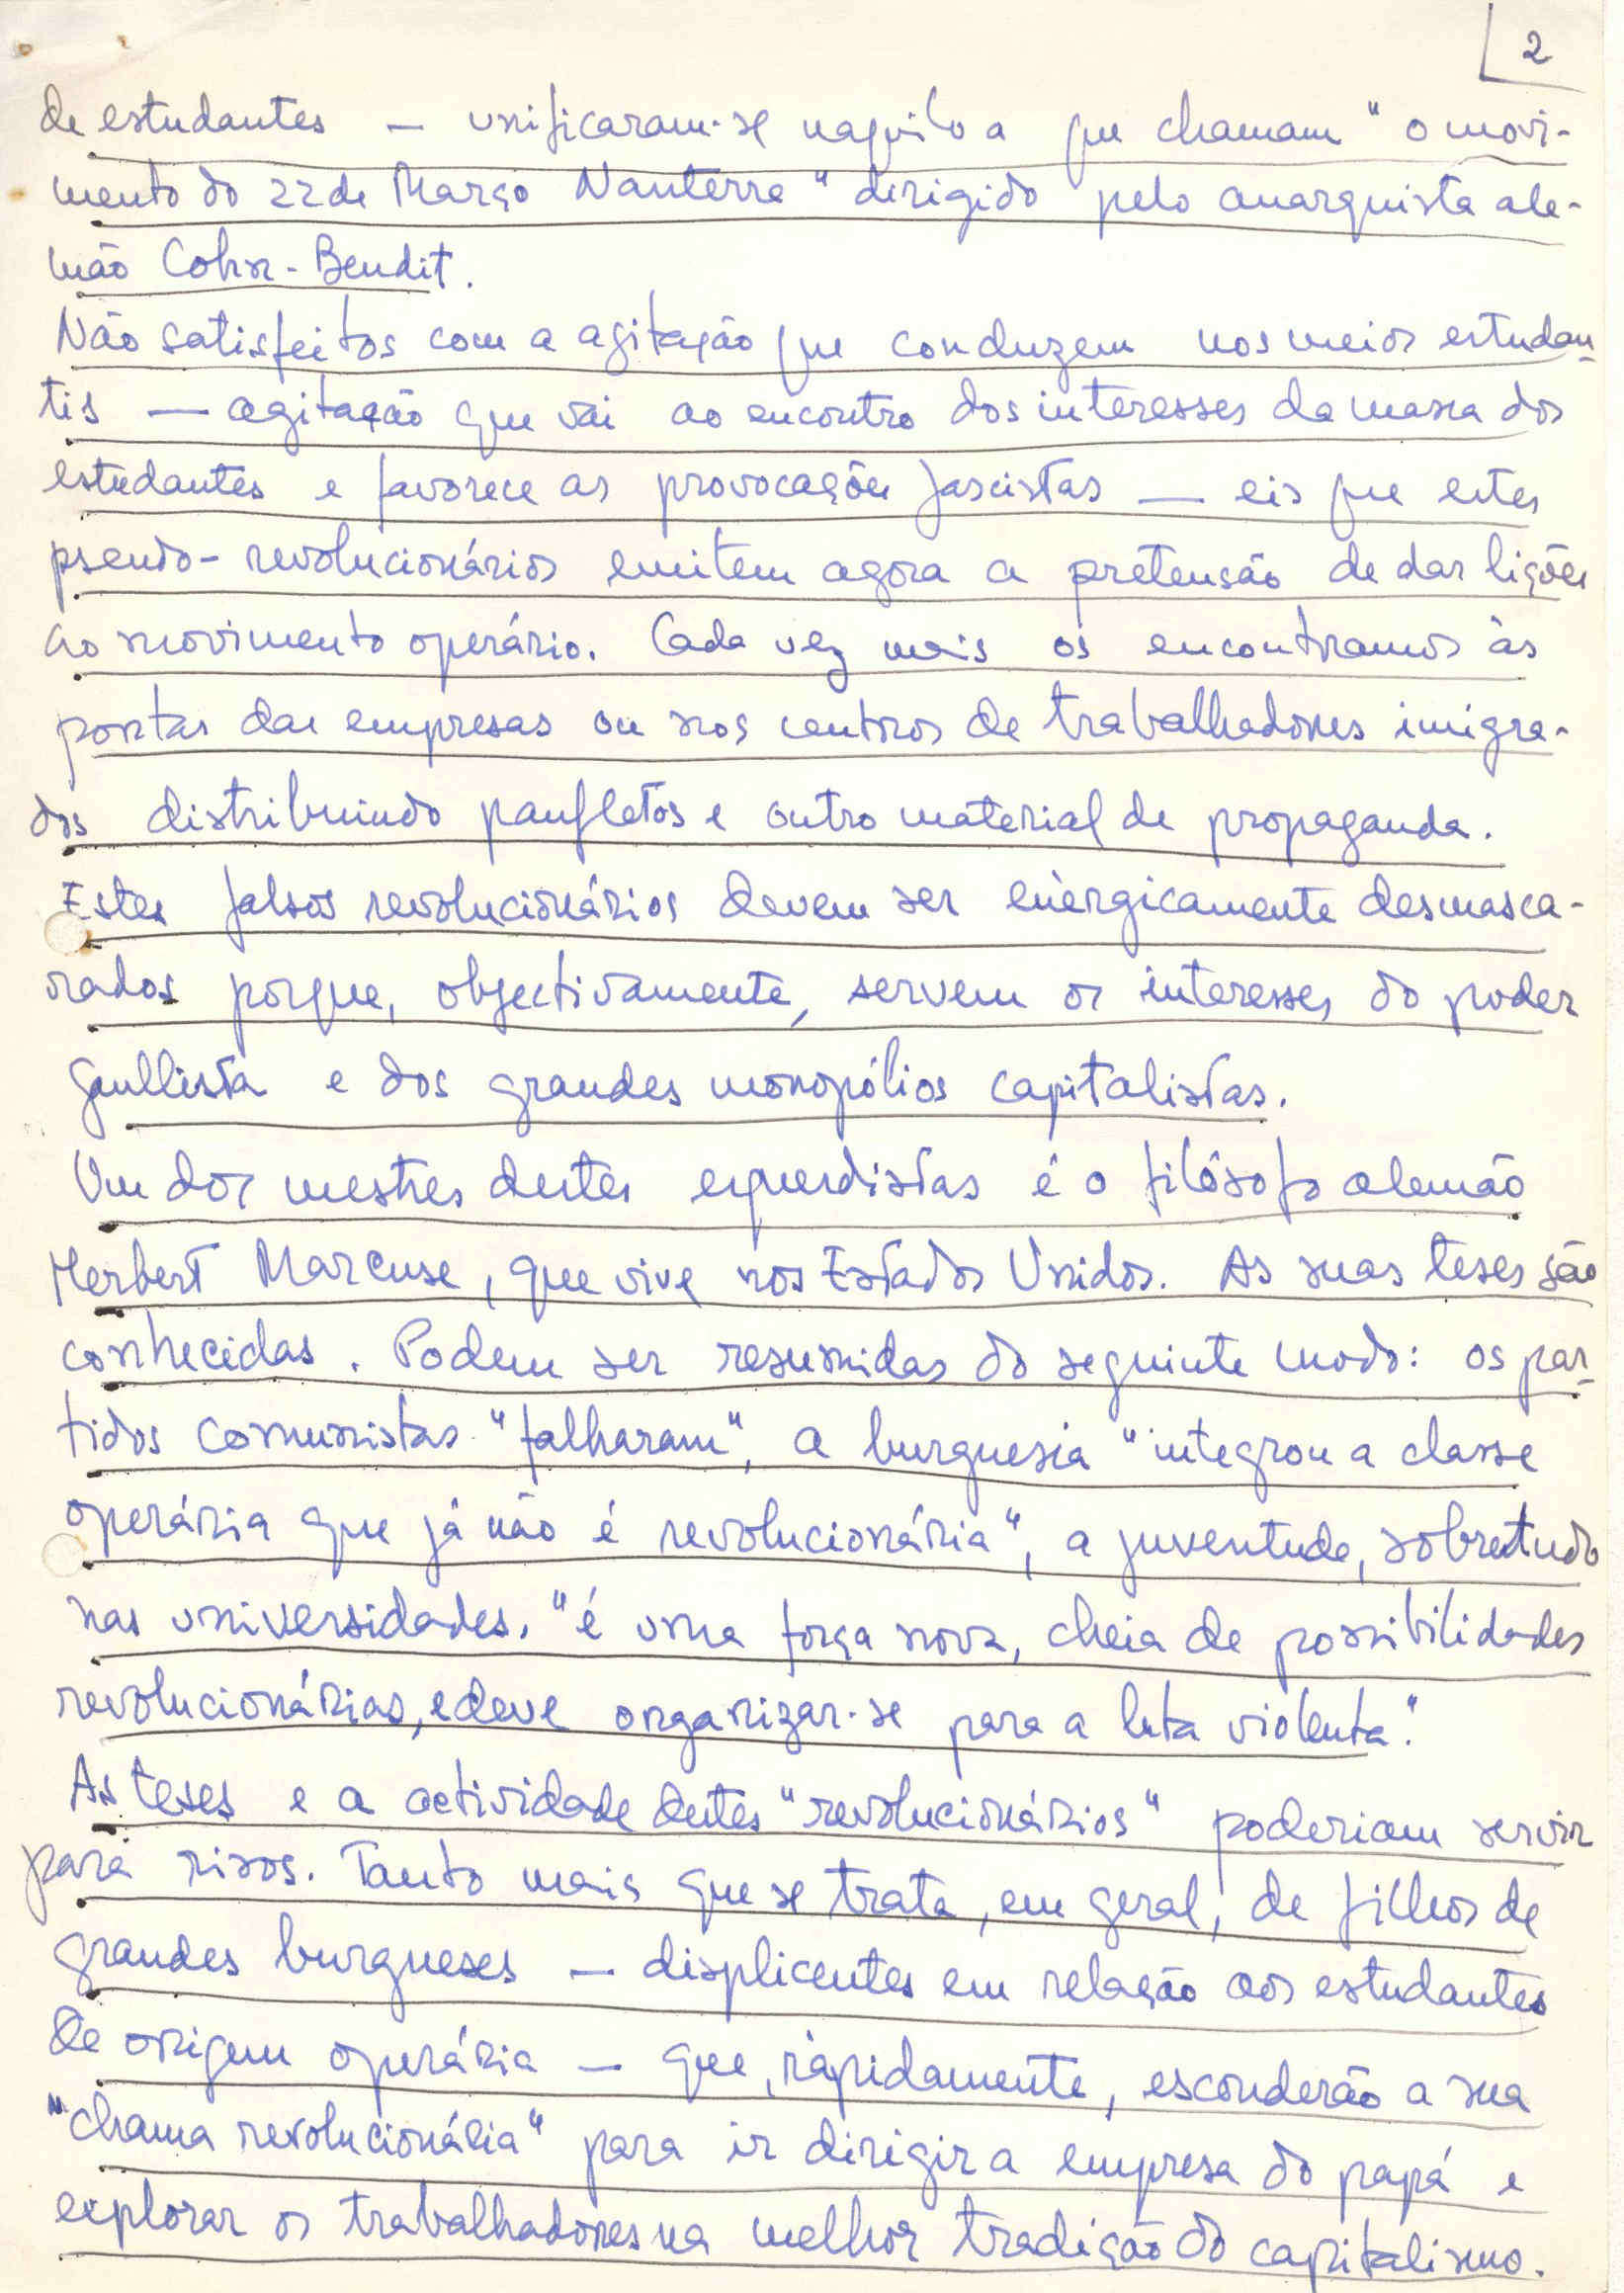 2
de estudantes — unificaram-se naquilo a que chamam "o movi-
mento do 22 de Março Nanterre" dirigido pelo anarquista ale-
mão Cohn-Bendit.
Não satisfeitos com a agitação que conduzem nos meios estudan-
tis — agitação que vai ao encontro dos interesses da massa dos
estudantes e favorece as provocações fascistas — eis que estes
pseudo-revolucionários emitem agora a pretensão de dar lições
ao movimento operário. Cada vez mais os encontramos às
portas das empresas ou nos centros de trabalhadores imigra-
dos distribuindo panfletos e outro material de propaganda.
Estes falsos revolucionários devem ser enèrgicamente desmasca-
rados porque, objectivamente, servem os interesses do poder
gaullista e dos grandes monopólios capitalistas.
Um dos mestres destes esquerdistas é o filósofo alemão
Herbert Marcuse, que vive nos Estados Unidos. As suas teses são
conhecidas. Podem ser resumidas do seguinte modo: os par-
tidos comunistas "falharam", a burguesia "integrou a classe
operária que já não é revolucionária", a juventude, sobretudo
nas universidades, "é uma força nova, cheia de possibilidades
revolucionárias, e deve organizar-se para a luta violenta".
As teses e a actividade destes "revolucionários" poderiam servir
para risos. Tanto mais que se trata, em geral, de filhos de
grandes burgueses — displicentes em relação aos estudantes
de origem operária — que, ràpidamente, esconderão a sua
"chama revolucionária" para ir dirigir a empresa do papá e
explorar os trabalhadores na melhor tradição do capitalismo.